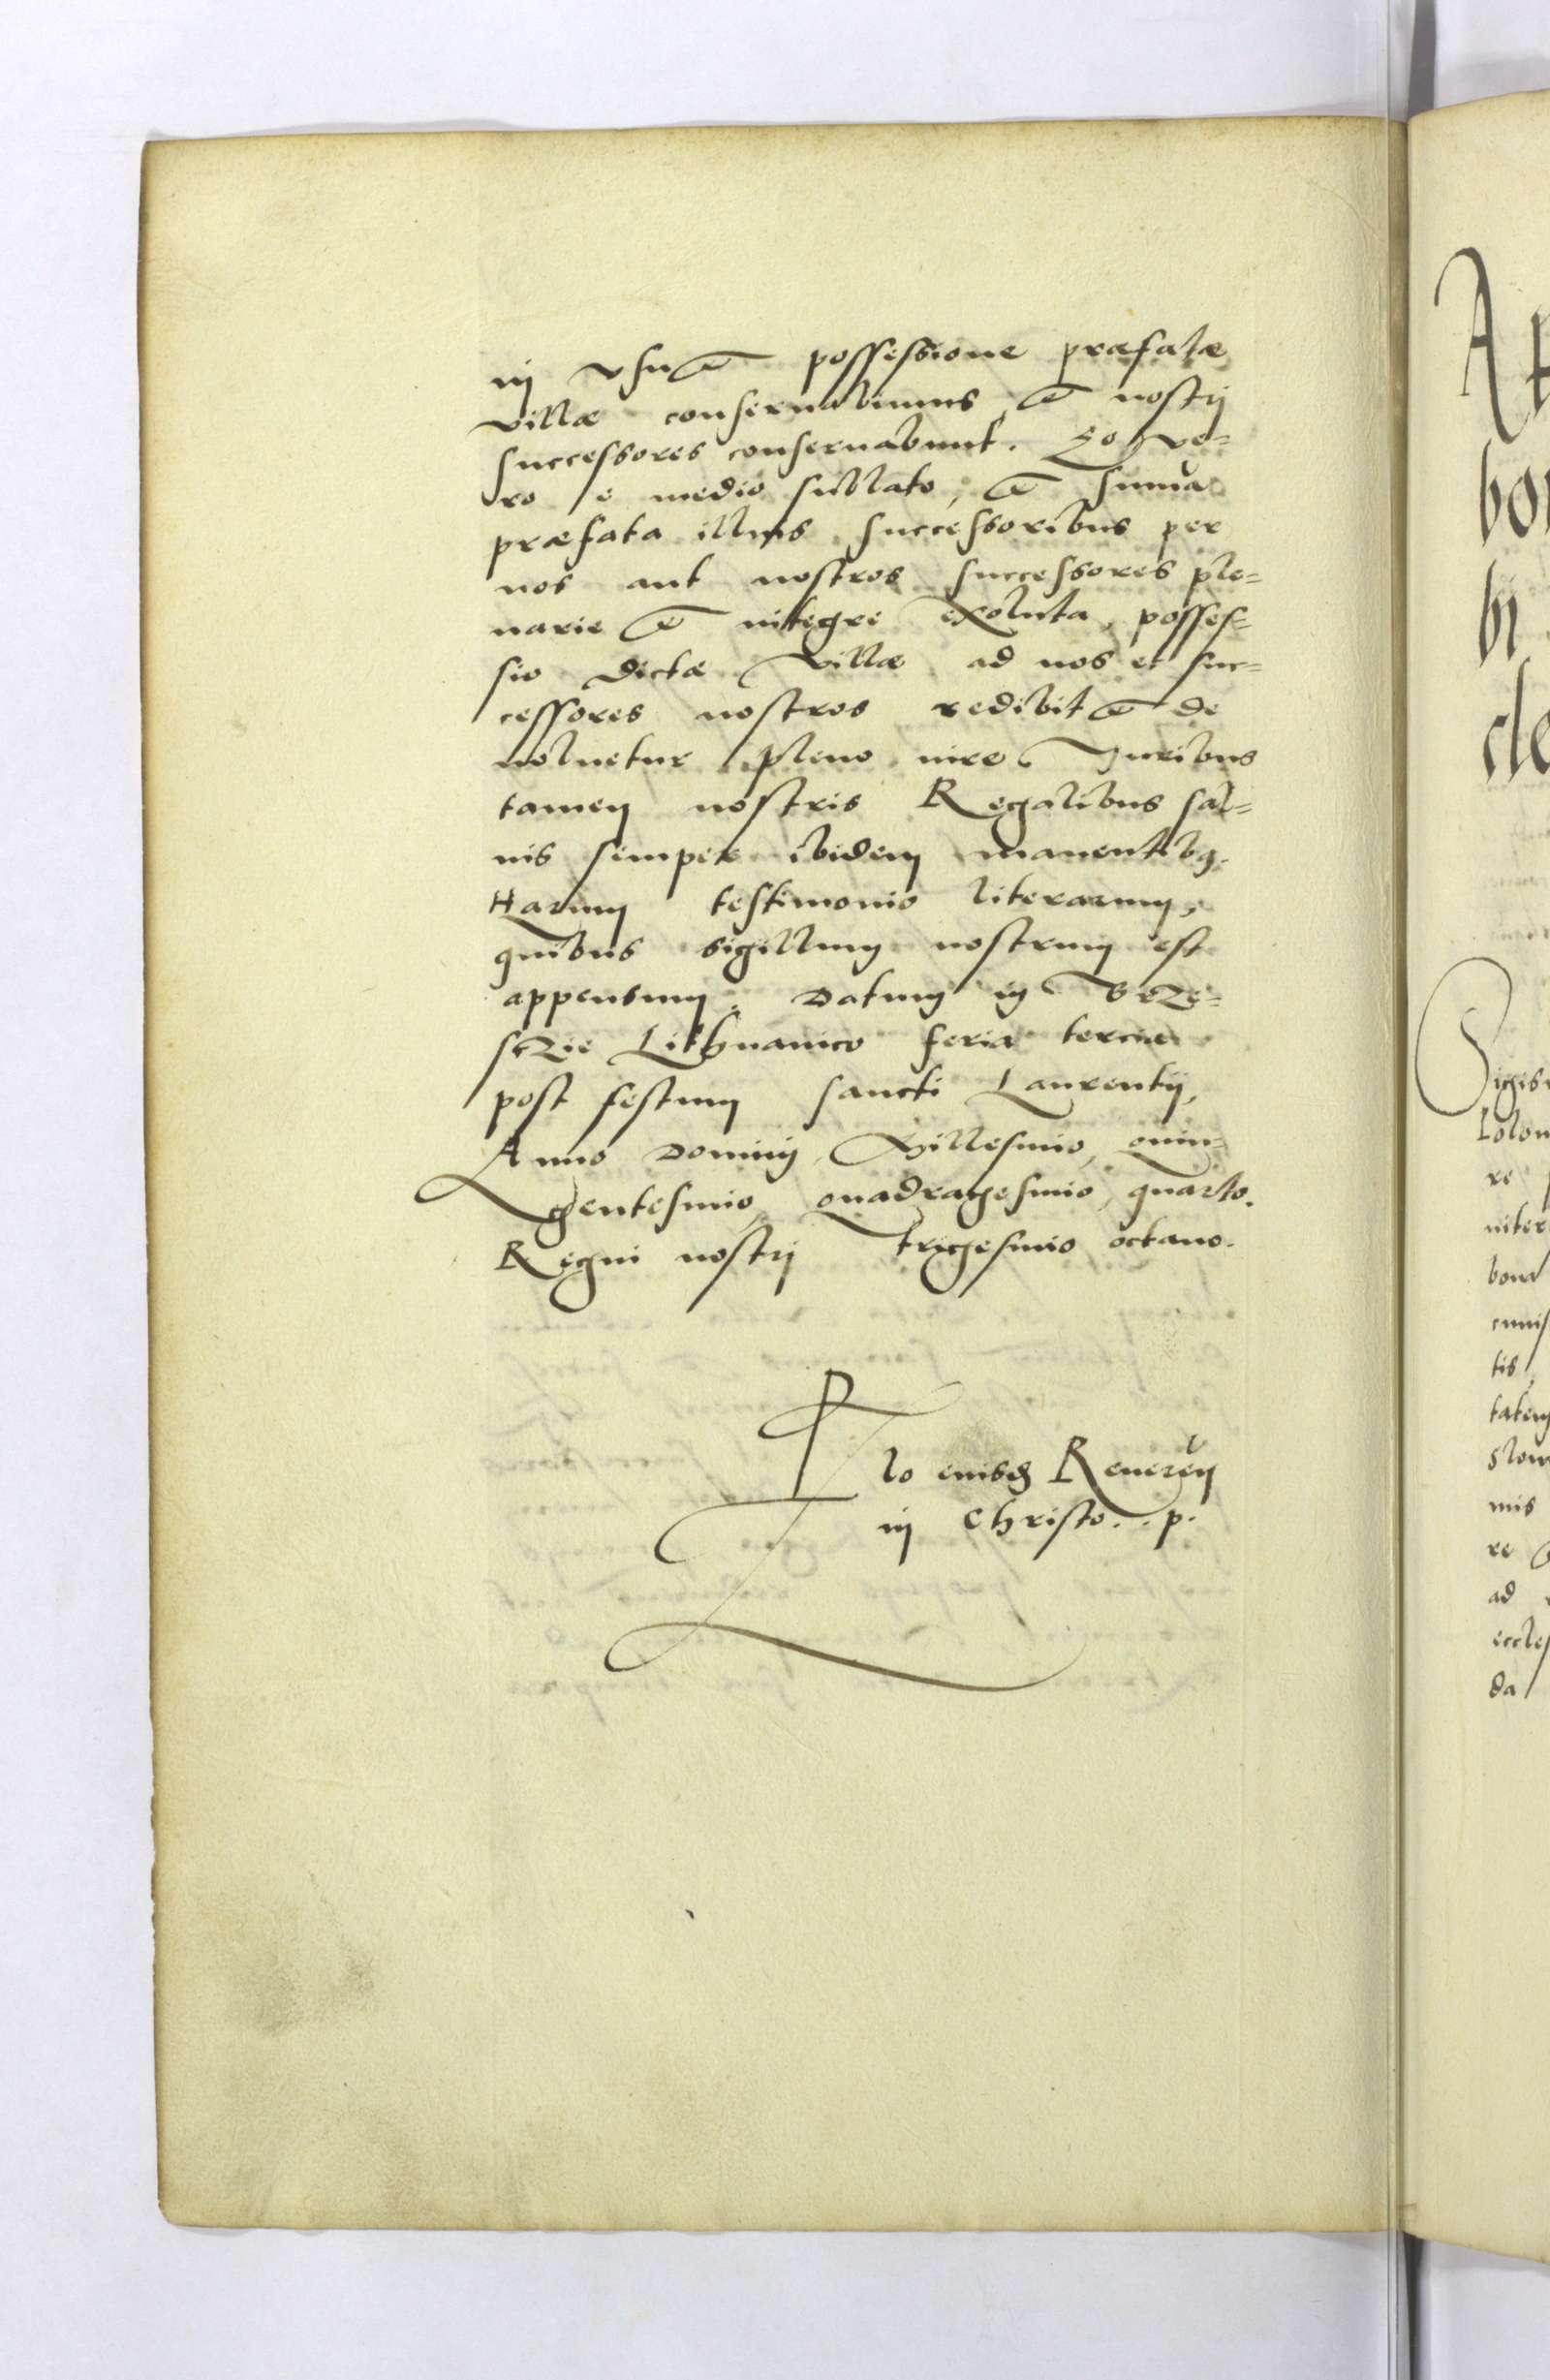 in vsu & possessione præfatæ
villæ conseruabimus, & nostri
successores conseruabunt. Eo ve-
ro e medio sublato, & summa
præfata illius successoribus per
nos aut nostros successores ple-
narie & integre exoluta, posses-
sio dictæ Villæ ad nos et suc-
cessores nostros redibit & de
uoluetur pleno iure Juribus
tamen nostris Regalibus sal-
uis semper ibidem manentibq.
Harum testimonio literarum,
quibus sigillum nostrum est
appensum. Datum in Brze-
sczie Lithuanico feria tercia
post festum sancti Laurentij,
Anno Domini, Millesimo, quin-
gentesimo, quadragesimo, quarto.
Regni nostri trigesimo octauo.
lo eiusdem Reueren
in Christo. . p.
A
bo
bi
cle
Sigis
Polon
re
niter
bona
cuius
tis
tatem
Slow
mis
re
ad
eccles
da